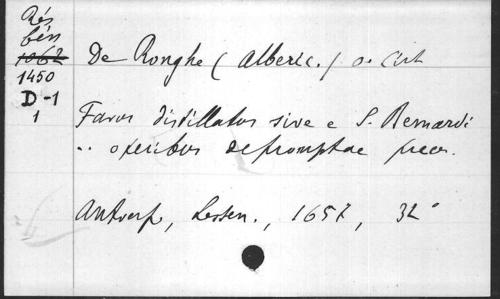 Rés
bén
1062
1450
D-1
1
De Ronghe (Alberic.) o. Cist
Favus distillatus sive e S. Bernardi
.. operibus depromptae preces.
Antverp, Lessen., 1657, 32°